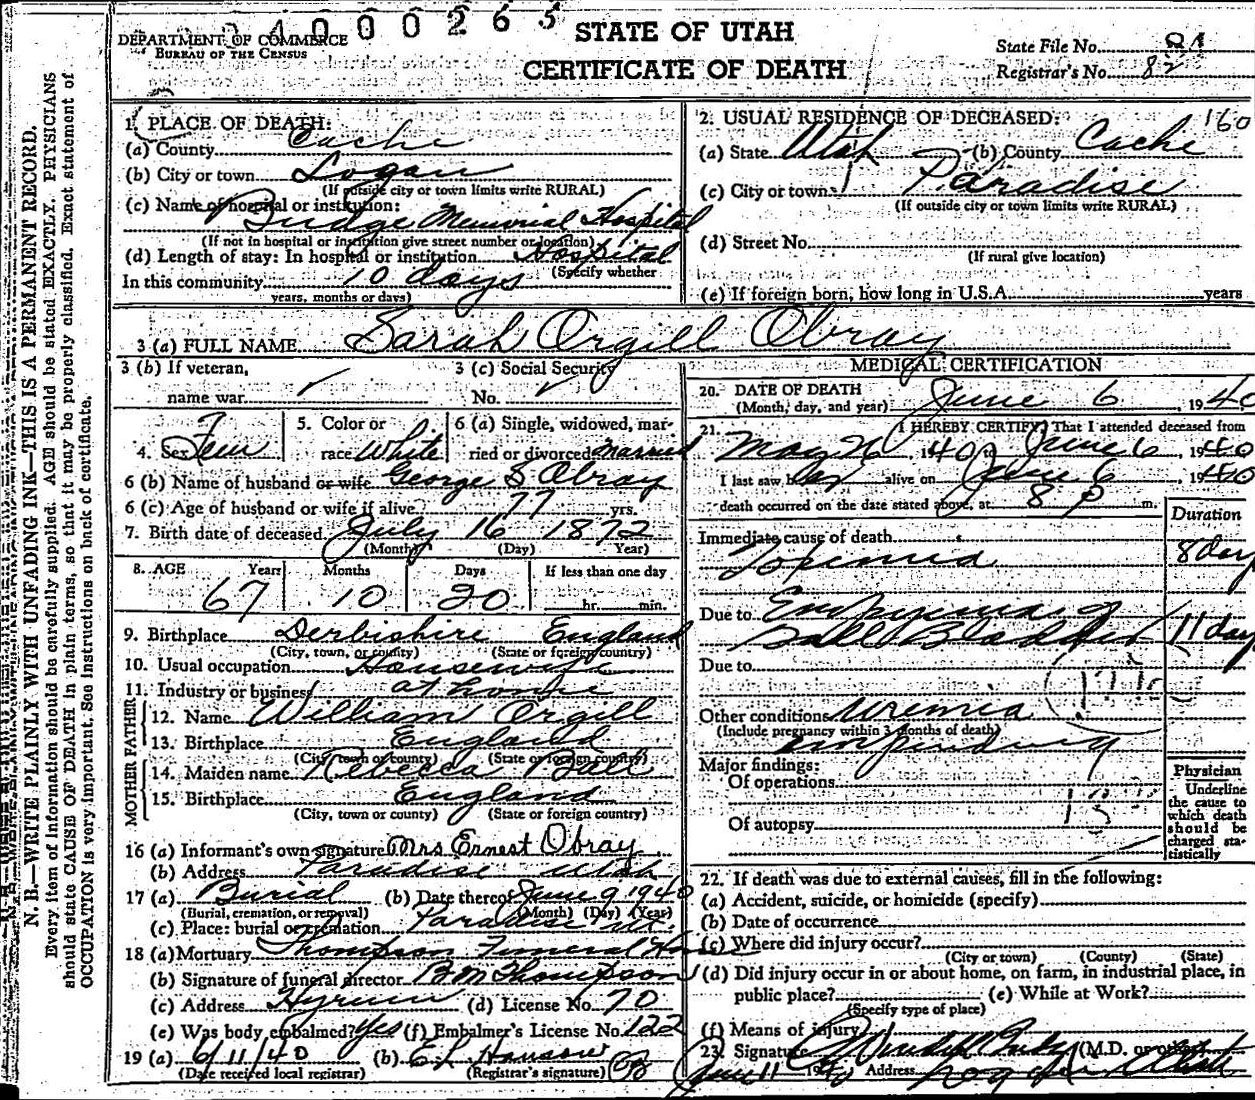 04000265
STATE OF UTAH
CERTIFICATE OF DEATH
DEPARTMENT OF COMMERCE
BUREAU OF THE CENSUS
State File No. 81
Registrar's No. 82
N. B.—WRITE PLAINLY WITH UNFADING INK—THIS IS A PERMANENT RECORD.
Every item of information should be carefully supplied. AGE should be stated EXACTLY. PHYSICIANS
should state CAUSE OF DEATH in plain terms, so that it may be properly classified. Exact statement of
OCCUPATION is very important. See instructions on back of certificate.
1. PLACE OF DEATH:
(a) County Cache
(b) City or town Logan
(If outside city or town limits write RURAL)
(c) Name of hospital or institution:
Budge Memorial Hospital
(If not in hospital or institution give street number or location)
(d) Length of stay: In hospital or institution Hospital
(Specify whether
In this community 10 days
years, months or days)
2. USUAL RESIDENCE OF DECEASED: 160
(a) State Utah (b) County Cache
(c) City or town Paradise
(If outside city or town limits write RURAL)
(d) Street No.
(If rural give location)
(e) If foreign born, how long in U.S.A. years
3 (a) FULL NAME Sarah Orgill Obray
3 (b) If veteran,
name war
3 (c) Social Security
No.
4. Sex Fem
5. Color or
race White
6 (a) Single, widowed, mar-
ried or divorced Married
6 (b) Name of husband or wife George S. Obray
6 (c) Age of husband or wife if alive 77 yrs.
7. Birth date of deceased July 16 1872
(Month) (Day) Year)
8. AGE Years Months Days If less than one day
67 10 20 hr. min.
9. Birthplace Derbishire England
(City, town, or county) (State or foreign country)
10. Usual occupation Housewife
11. Industry or business at home
FATHER
12. Name William Orgill
13. Birthplace England
(City, town or county) (State or foreign country)
MOTHER
14. Maiden name Rebecca Ball
15. Birthplace England
(City, town or county) (State or foreign country)
16 (a) Informant's own signature Mrs Ernest Obray
(b) Address Paradise Utah
17 (a) Burial (b) Date thereof June 9 1940
(Burial, cremation, or removal) (Month) (Day) (Year)
(c) Place: burial or cremation Paradise Ut.
18 (a) Mortuary Thompson Funeral Home
(b) Signature of funeral director B M Thompson
(c) Address Hyrum (d) License No. 70
(e) Was body embalmed? Yes (f) Embalmer's License No. 122
19 (a) 6/11/40 (b) E L Hansow
(Date received local registrar) (Registrar's signature)
MEDICAL CERTIFICATION
20. DATE OF DEATH
(Month, day, and year) June 6, 1940
21. I HEREBY CERTIFY, That I attended deceased from
May 26, 1940, to June 6, 1940
I last saw her alive on June 6, 1940
death occurred on the date stated above, at 8 P m.
Duration
Immediate cause of death
Toxemia 8 day
Due to Empyema of
Gall Bladder 11 day
Due to
Other conditions Uremia
(Include pregnancy within 3 months of death)
Major findings:
Of operations
Of autopsy
Physician
Underline
the cause to
which death
should be
charged sta-
tistically
22. If death was due to external causes, fill in the following:
(a) Accident, suicide, or homicide (specify)
(b) Date of occurrence
(c) Where did injury occur?
(City or town) (County) (State)
(d) Did injury occur in or about home, on farm, in industrial place, in
public place? (e) While at Work?
(Specify type of place)
(f) Means of injury
23. Signature (M.D. or other)
June 11 1940 Address Logan Utah